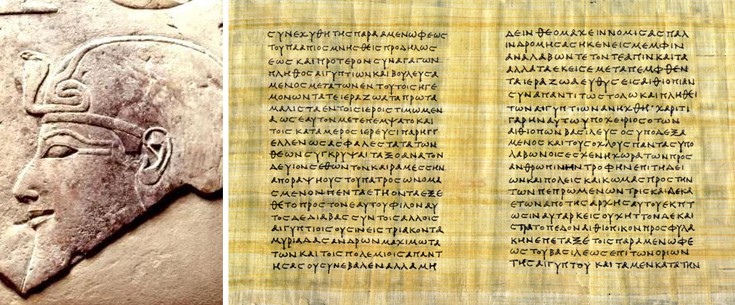 ϹΥΝΕΧΥΘΗΤΗϹΠΑΡΑΑΜΕΝΩΦΕΩϹ
ΤΟΥΠΑΑΠΙΟϹΜΝΗϹΘΕΙϹΠΡΟΔΗΛΩϹ
ΕΩϹΚΑΙΠΡΟΤΕΡΟΝϹΥΝΑΓΑΓΩΝ
ΠΛΗΘΟϹΑΙΓΥΠΤΙΩΝΚΑΙΒΟΥΛΕΥϹΑ
ΜΕΝΟϹΜΕΤΑΤΩΝΕΝΤΟΥΤΟΙϹΗΓΕ
ΜΟΝΩΝΤΑΤΕΙΕΡΑΖΩΑΤΑΠΡΩΤΑ
ΜΑΛΙϹΤΑΕΝΤΟΙϹΙΕΡΟΙϹΤΙΜΩΜΕΝ
ΑΩϹΕΑΥΤΟΝΜΕΤΕΠΕΜΨΑΤΟΚΑΙ
ΤΟΙϹΚΑΤΑΜΕΡΟϹΙΕΡΕΥϹΙΠΑΡΗΓΓ
ΕΛΛΕΝΩϹΑϹΦΑΛΕϹΤΑΤΑΤΩΝ
ΘΕΩΝϹΥΓΚΡΥΨΑΙΤΑΞΟΑΝΑΤΟΝ
ΔΕΥΙΟΝϹΕΘΩΤΟΝΚΑΙΡΑΜΕϹϹΗΝ
ΑΠΟΡΑΨΗΟΥϹΤΟΥΠΑΤΡΟϹΩΝΟΜΑ
ϹΜΕΝΟΝΠΕΝΤΑΕΤΗΟΝΤΑΕΞΕ
ΘΕΤΟΠΡΟϹΤΟΝΕΑΥΤΟΥΦΙΛΟΝΑΥ
ΤΟϹΔΕΔΙΑΒΑϹϹΥΝΤΟΙϹΑΛΛΟΙϹ
ΑΙΓΥΠΤΙΟΙϹΟΥϹΙΝΕΙϹΤΡΙΑΚΟΝΤΑ
ΜΥΡΙΑΔΑϹΑΝΔΡΩΝΜΑΧΙΜΩΤΑ
ΤΩΝΚΑΙΤΟΙϹΠΟΛΕΜΙΟΙϹΑΠΑΝΤ
ΗϹΑϹΟΥϹΥΝΕΒΑΛΕΝΑΛΛΑΜΗ
ΔΕΙΝΘΕΟΜΑΧΕΙΝΝΟΜΙϹΑϹΠΑΛ
ΙΝΔΡΟΜΗϹΑϹΗΚΕΝΕΙϹΜΕΜΦΙΝ
ΑΝΑΛΑΒΩΝΤΕΤΟΝΤΕΑΠΙΝΚΑΙΤΑ
ΑΛΛΑΤΑΕΚΕΙϹΕΜΕΤΑΠΕΜΦΘΕΝ
ΤΑΙΕΡΑΖΩΑΕΥΘΥϹΕΙϹΑΙΘΙΟΠΙΑΝ
ϹΥΝΑΠΑΝΤΙΤΩϹΤΟΛΩΚΑΙΠΛΗΘΕΙ
ΤΩΝΑΙΓΥΠΤΙΩΝΑΝΗΧΘΗ·ΧΑΡΙΤΙ
ΓΑΡΗΝΑΥΤΩΥΠΟΧΕΙΡΙΟϹΟΤΩΝ
ΑΙΘΙΟΠΩΝΒΑϹΙΛΕΥϹΟϹΥΠΟΔΕΞΑ
ΜΕΝΟϹΚΑΙΤΟΥϹΟΧΛΟΥϹΠΑΝΤΑϹΥΠΟ
ΛΑΒΩΝΟΙϹΕϹΧΕΝΗΧΩΡΑΤΩΝΠΡΟϹ
ΑΝΘΡΩΠΙΝΗΝΤΡΟΦΗΝΕΠΙΤΗΔΕΙ
ΩΝΚΑΙΠΟΛΕΙϹΚΑΙΚΩΜΑϹΠΡΟϹΤΗΝ
ΤΩΝΠΕΠΡΩΜΕΝΩΝΤΡΙϹΚΑΙΔΕΚΑ
ΕΤΩΝΑΠΟΤΗϹΑΡΧΗϹΑΥΤΟΥΕΚΠΤ
ΩϹΙΝΑΥΤΑΡΚΕΙϹΟΥΧΗΤΤΟΝΔΕΚΑΙ
ϹΤΡΑΤΟΠΕΔΟΝΑΙΘΙΟΠΙΚΟΝΠΡΟϹΦΥΛΑ
ΚΗΝΕΠΕΤΑΞΕΤΟΙϹΠΑΡΑΜΕΝΩΦΕ
ΩϹΤΟΥΒΑϹΙΛΕΩϹΕΠΙΤΩΝΟΡΙΩΝ
ΤΗϹΑΙΓΥΠΤΟΥ ΚΑΙΤΑΜΕΝΚΑΤΑΤΗΝ